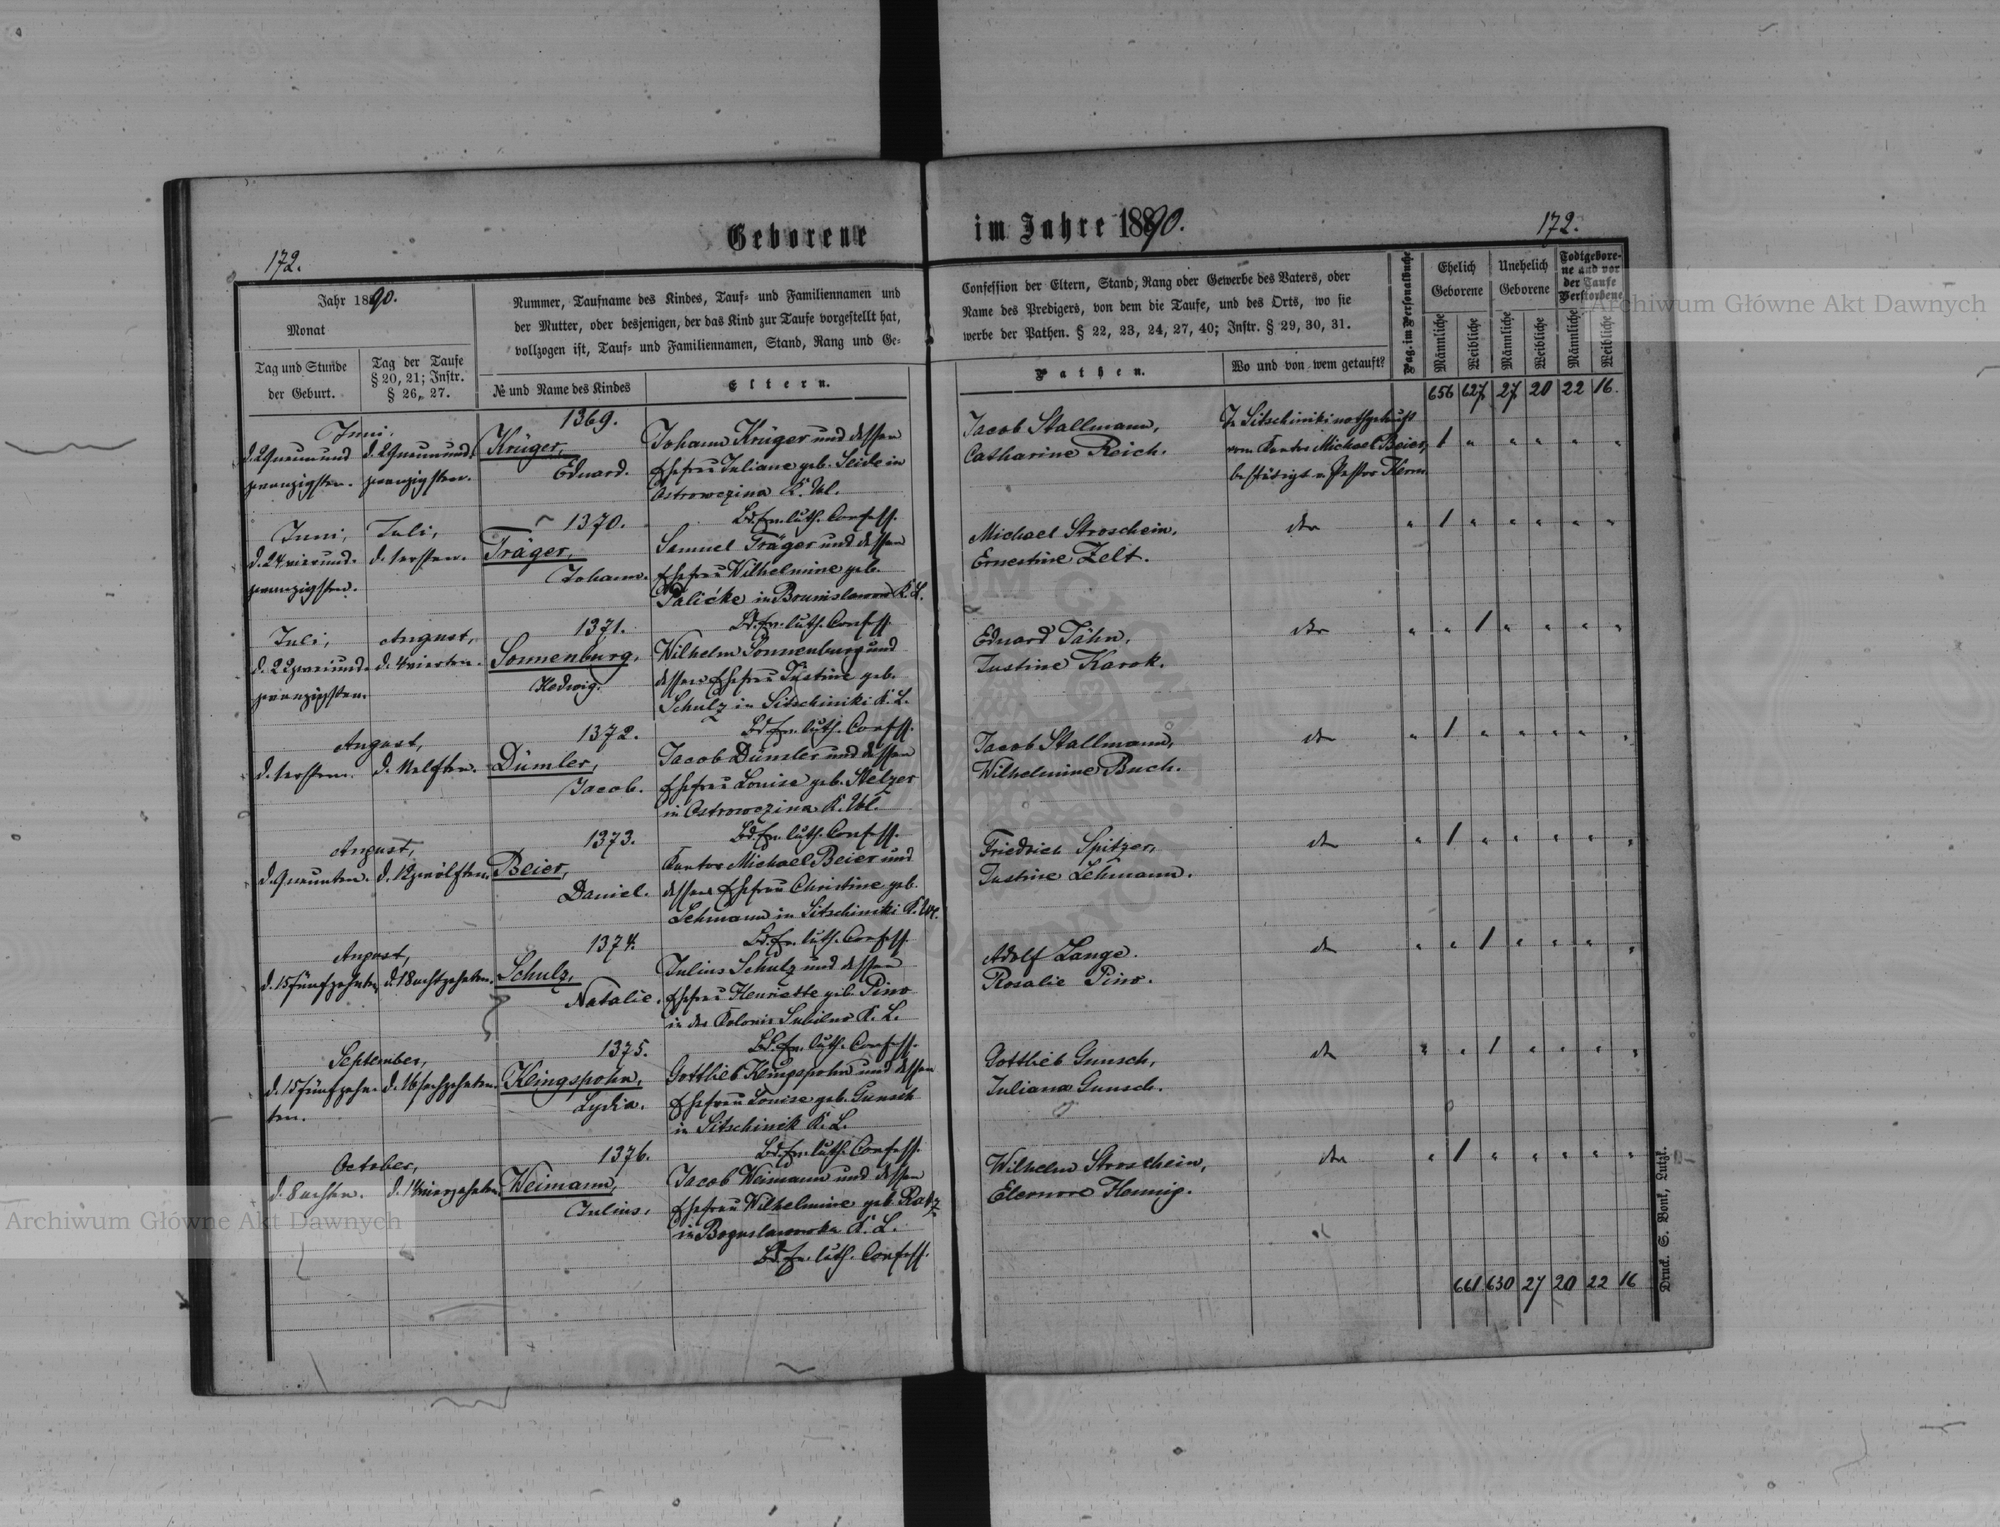 Geborene im Jahre 1890.
172.
172.
Jahr 1890.
Monat
Tag und Stunde
der Geburt.
Tag der Taufe
§ 20, 21; Instr.
§ 26, 27.
Nummer, Taufname des Kindes, Tauf- und Familiennamen und
der Mutter, oder desjenigen, der das Kind zur Taufe vorgestellt hat,
vollzogen ist, Tauf- und Familiennamen, Stand, Rang und Ge-
№ und Name des Kindes
Eltern.
Confession der Eltern, Stand, Rang oder Gewerbe des Vaters, oder
Name des Predigers, von dem die Taufe, und des Orts, wo sie
werbe der Pathen. § 22, 23, 24, 27, 40; Instr. § 29, 30, 31.
Pathen.
Wo und von wem getauft?
Pag. im Personalbuche
Ehelich
Geborene
Unehelich
Geborene
Todtgebore-
ne und vor
der Taufe
Verstorbene
Männliche
Weibliche
Männliche
Weibliche
Männliche
Weibliche
656 627 27 20 22 16.
Juni.
d. 29 neunund
zwanzigsten.
d. 29 neunund
zwanzigsten.
1369.
Krüger,
Eduard.
Johann Krüger und dessen
Ehefrau Juliane geb. Seide in
Ostrowczina K. Wl.
Bd. Ev. luth. Confess.
Jacob Stallmann,
Catharine Reich.
In Sitschiniki nothgetauft
vom Kantor Michael Beier,
bestätigt v. Pastor Kerm
Juni,
d. 24 vierund-
zwanzigsten.
Juli,
d. 1 ersten.
1370.
Träger,
Johann.
Samuel Träger und dessen
Ehefrau Wilhelmine geb.
Palicke in K. L.
Bd. Ev. luth. Confess.
Michael Stroschein,
Ernestine Zelt.
dto
Juli,
d. 22 zweiund-
zwanzigsten.
August,
d. 4 vierten.
1371.
Sonnenburg,
Hedwig.
Wilhelm Sonnenburg und
dessen Ehefrau Justine geb.
Schulz in Sitschiniki K. L.
Bd. Ev. luth. Confess.
Eduard Jähn,
Justine Karok.
dto
August,
d. 1 ersten.
d. 11 elften.
1372.
Dümler,
Jacob.
Jacob Dümler und dessen
Ehefrau Louise geb. Nelzer
in Ostrowczina K. Wl.
Bd. Ev. luth. Confess.
Jacob Stallmann,
Wilhelmine Buch.
dto
August,
d. 9 neunten.
d. 12 zwölften.
1373.
Beier,
Daniel.
Kantor Michael Beier und
dessen Ehefrau Christine geb.
Lehmann in Sitschiniki K. Wl.
Bd. Ev. luth. Confess.
Friedrich Spitzer,
Justine Lehmann.
dto
August,
d. 15 fünfzehnten
d. 18 achtzehnten.
1374.
Schulz,
Natalie.
Julius Schulz und dessen
Ehefrau Henriette geb. Pino
in der Kolonie K. L.
Bd. Ev. luth. Confess.
Adolf Lange.
Rosalie Pino.
dto
September,
d. 15 fünfzehn-
ten.
d. 16 sechzehnten.
1375.
Klingspohn,
Lydia.
Gottlieb Klingspohn und dessen
Ehefrau Louise geb. Gunsch
in Sitschinik K. L.
Bd. Ev. luth. Confess.
Gottlieb Gunsch,
Juliana Gunsch.
dto
October,
d. 8 achten.
d. 14 vierzehnten.
1376.
Weimann,
Julius.
Jacob Weimann und dessen
Ehefrau Wilhelmine geb. Ratz
in Boguslawowka K. L.
Bd. Ev. luth. Confess.
Wilhelm Stroschein,
Eleonore Hennig.
dto
661 630 27 20 22 16
Druck. S. Bonk, Lutzk.
Archiwum Główne Akt Dawnych
Archiwum Główne Akt Dawnych